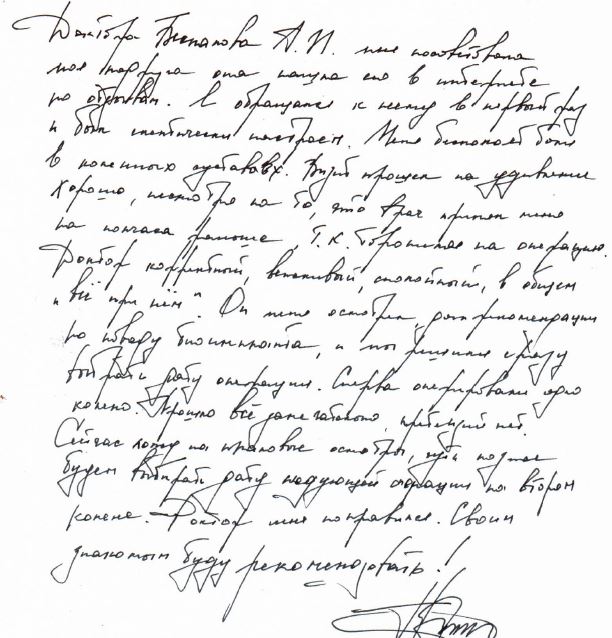 Доктора Беспалова А. И. мне посоветовала
моя подруга она нашла его в интернете
по отзывам. Я обращался к нему в первый раз
и был скептически настроен. Меня беспокоят боли
в коленных суставах. Визит прошел на удивление
хорошо, несмотря на то, что врач принял меня
на полчаса раньше, т.к. торопился на операцию.
Доктор корректный, вежливый, спокойный, в общем
"всё при нём". Он меня осмотрел, дал рекомендации
по поводу биоимпланта, и мы решили сразу
выбрать дату операции. Сперва оперировали одно
колено. Прошло всё замечательно, претензий нет.
Сейчас хожу на плановые осмотры, чуть позднее
будем выбирать дату следующей операции на втором
колене. Доктор мне понравился. Своим
знакомым буду рекомендовать!